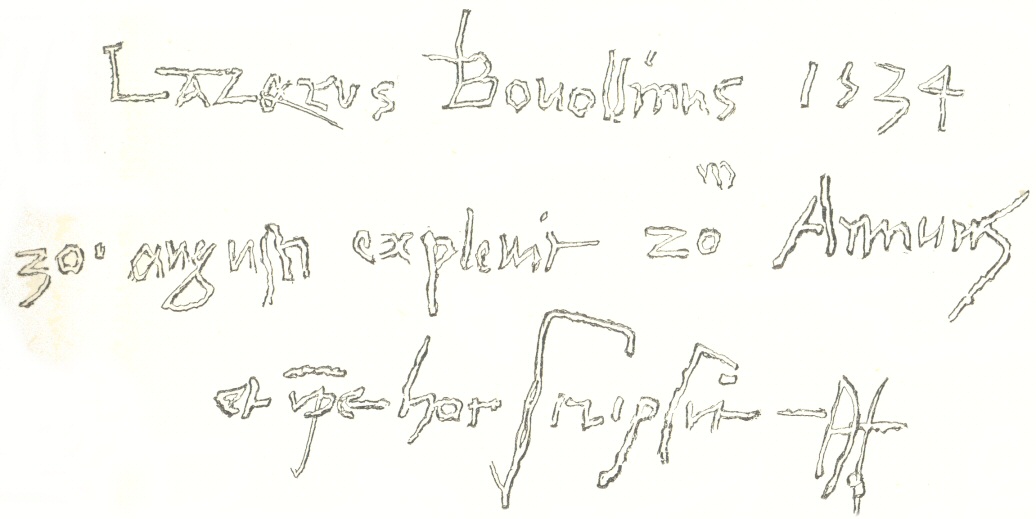 Lazarus Bovollinus 1534
30 augusti explevit 20 m Annum
et ipse hoc scripsit